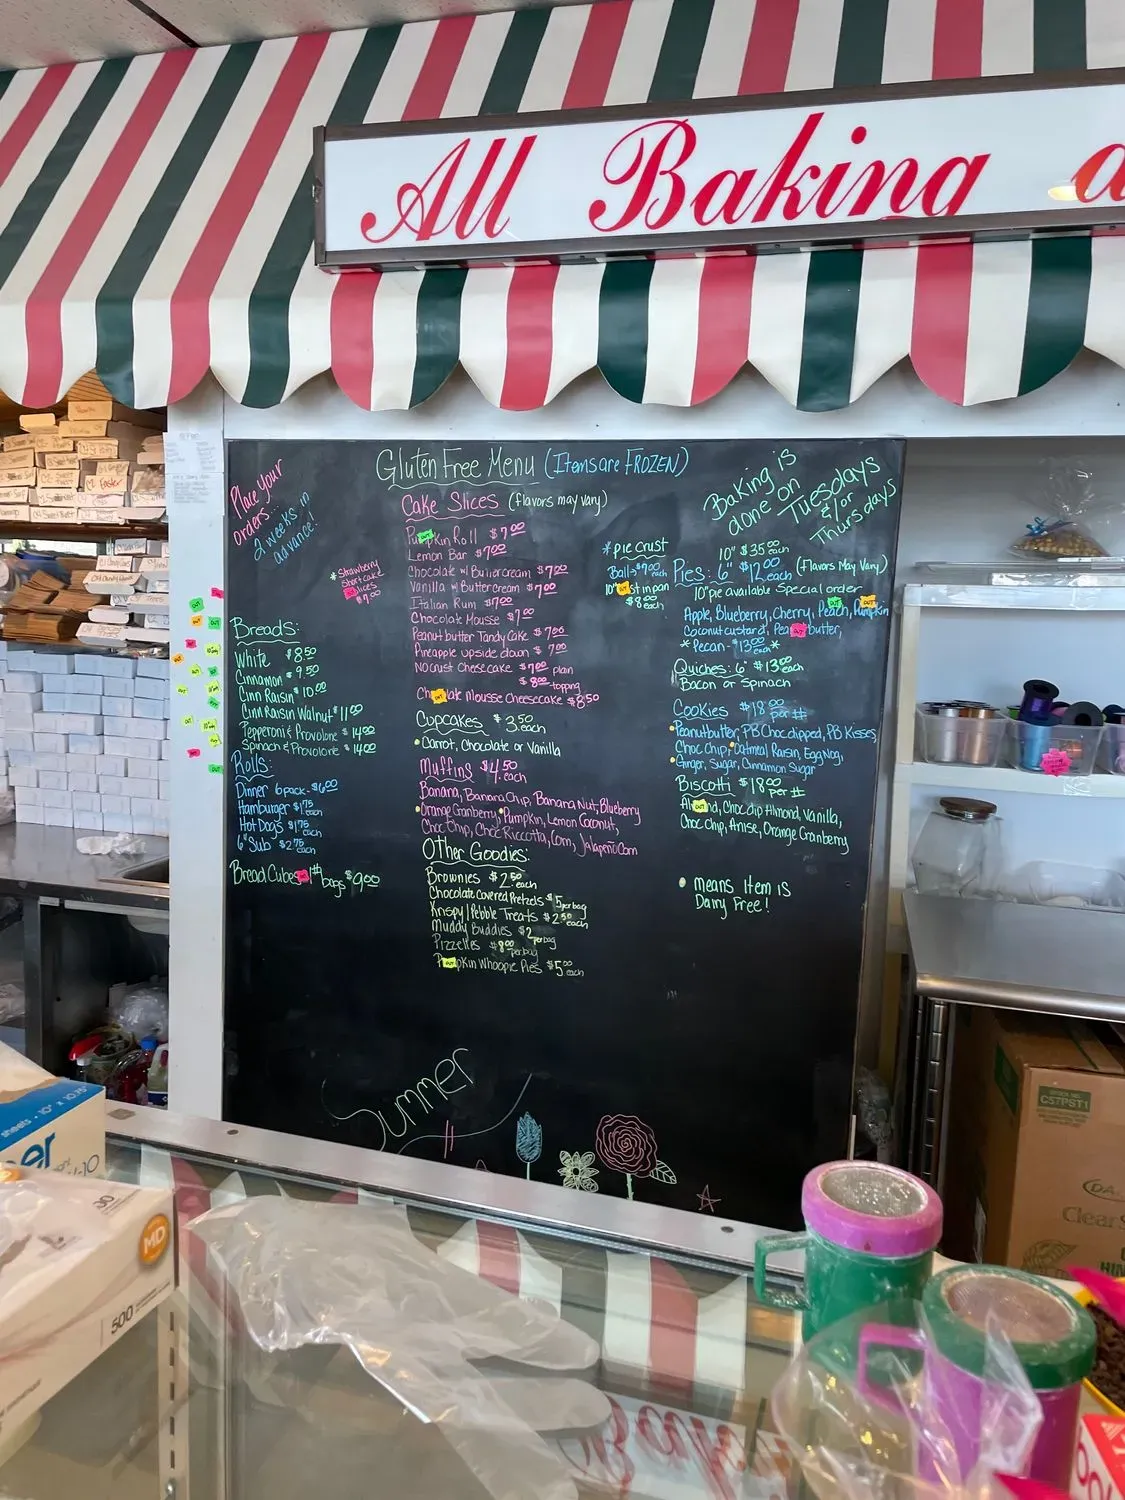 All Baking
Gluten Free Menu (Items are FROZEN)
Place Your
orders...
2 weeks in
advance!
* Strawberry
Shortcake
Slices
$7.00
Breads:
White $8.50
Cinnamon $9.50
Cinn Raisin $10.00
Cinn Raisin Walnut $11.00
Pepperoni & Provolone $14.00
Spinach & Provolone $14.00
Rolls:
Dinner 6 pack - $6.00
Hamburger $1.75 each
Hot Dogs $1.75 each
6" Sub $2.75 each
Bread Cubes 1# bags $9.00
Cake Slices (flavors may vary)
Pumpkin Roll $7.00
Lemon Bar $7.00
Chocolate w/ Buttercream $7.00
Vanilla w/ Buttercream $7.00
Italian Rum $7.00
Chocolate Mousse $7.00
Peanut butter Tandy Cake $7.00
Pineapple upside down $7.00
No crust Cheesecake $7.00 plain
$8.00 topping
Mousse Cheesecake $8.50
Cupcakes $3.50 each
Carrot, Chocolate or Vanilla
Muffins $4.50 each
Banana, Banana Chip, Banana Nut, Blueberry
Orange Cranberry, Pumpkin, Lemon Coconut,
Choc Chip, Choc Riccotta, Corn, Jalapeño Corn
Other Goodies:
Brownies $2.50 each
Chocolate Covered Pretzels $5 per bag
Krispy / Pebble Treats $2.50 each
Muddy Buddies $2 per bag
Pizzelles $8.00 per bag
Pumpkin Whoopie Pies $5.00 each
Baking is
done on
Tuesdays
&/or
Thursdays
* Pie Crust
Ball → $7.00 each
10" in pan
$8.00 each
10" $35.00 each
Pies: 6" $12.00 each (Flavors May Vary)
10" pie available Special order
Apple, Blueberry, Cherry, Peach, Pumpkin
Coconut custard, Peanut butter,
* Pecan - $13.00 each *
Quiches: 6" $13.00 each
Bacon or Spinach
Cookies $18.00 per #
Peanutbutter, PB Choc dipped, PB Kisses,
Choc Chip, Oatmeal Raisin, Eggnog,
Ginger, Sugar, Cinnamon Sugar
Biscotti $18.00 per #
Almond, Choc dip Almond, Vanilla,
Choc Chip, Anise, Orange Cranberry
means Item is
Dairy Free!
Summer
OUT
C57PST1
Clear
500
MD
sheets · 10" x 10.75"